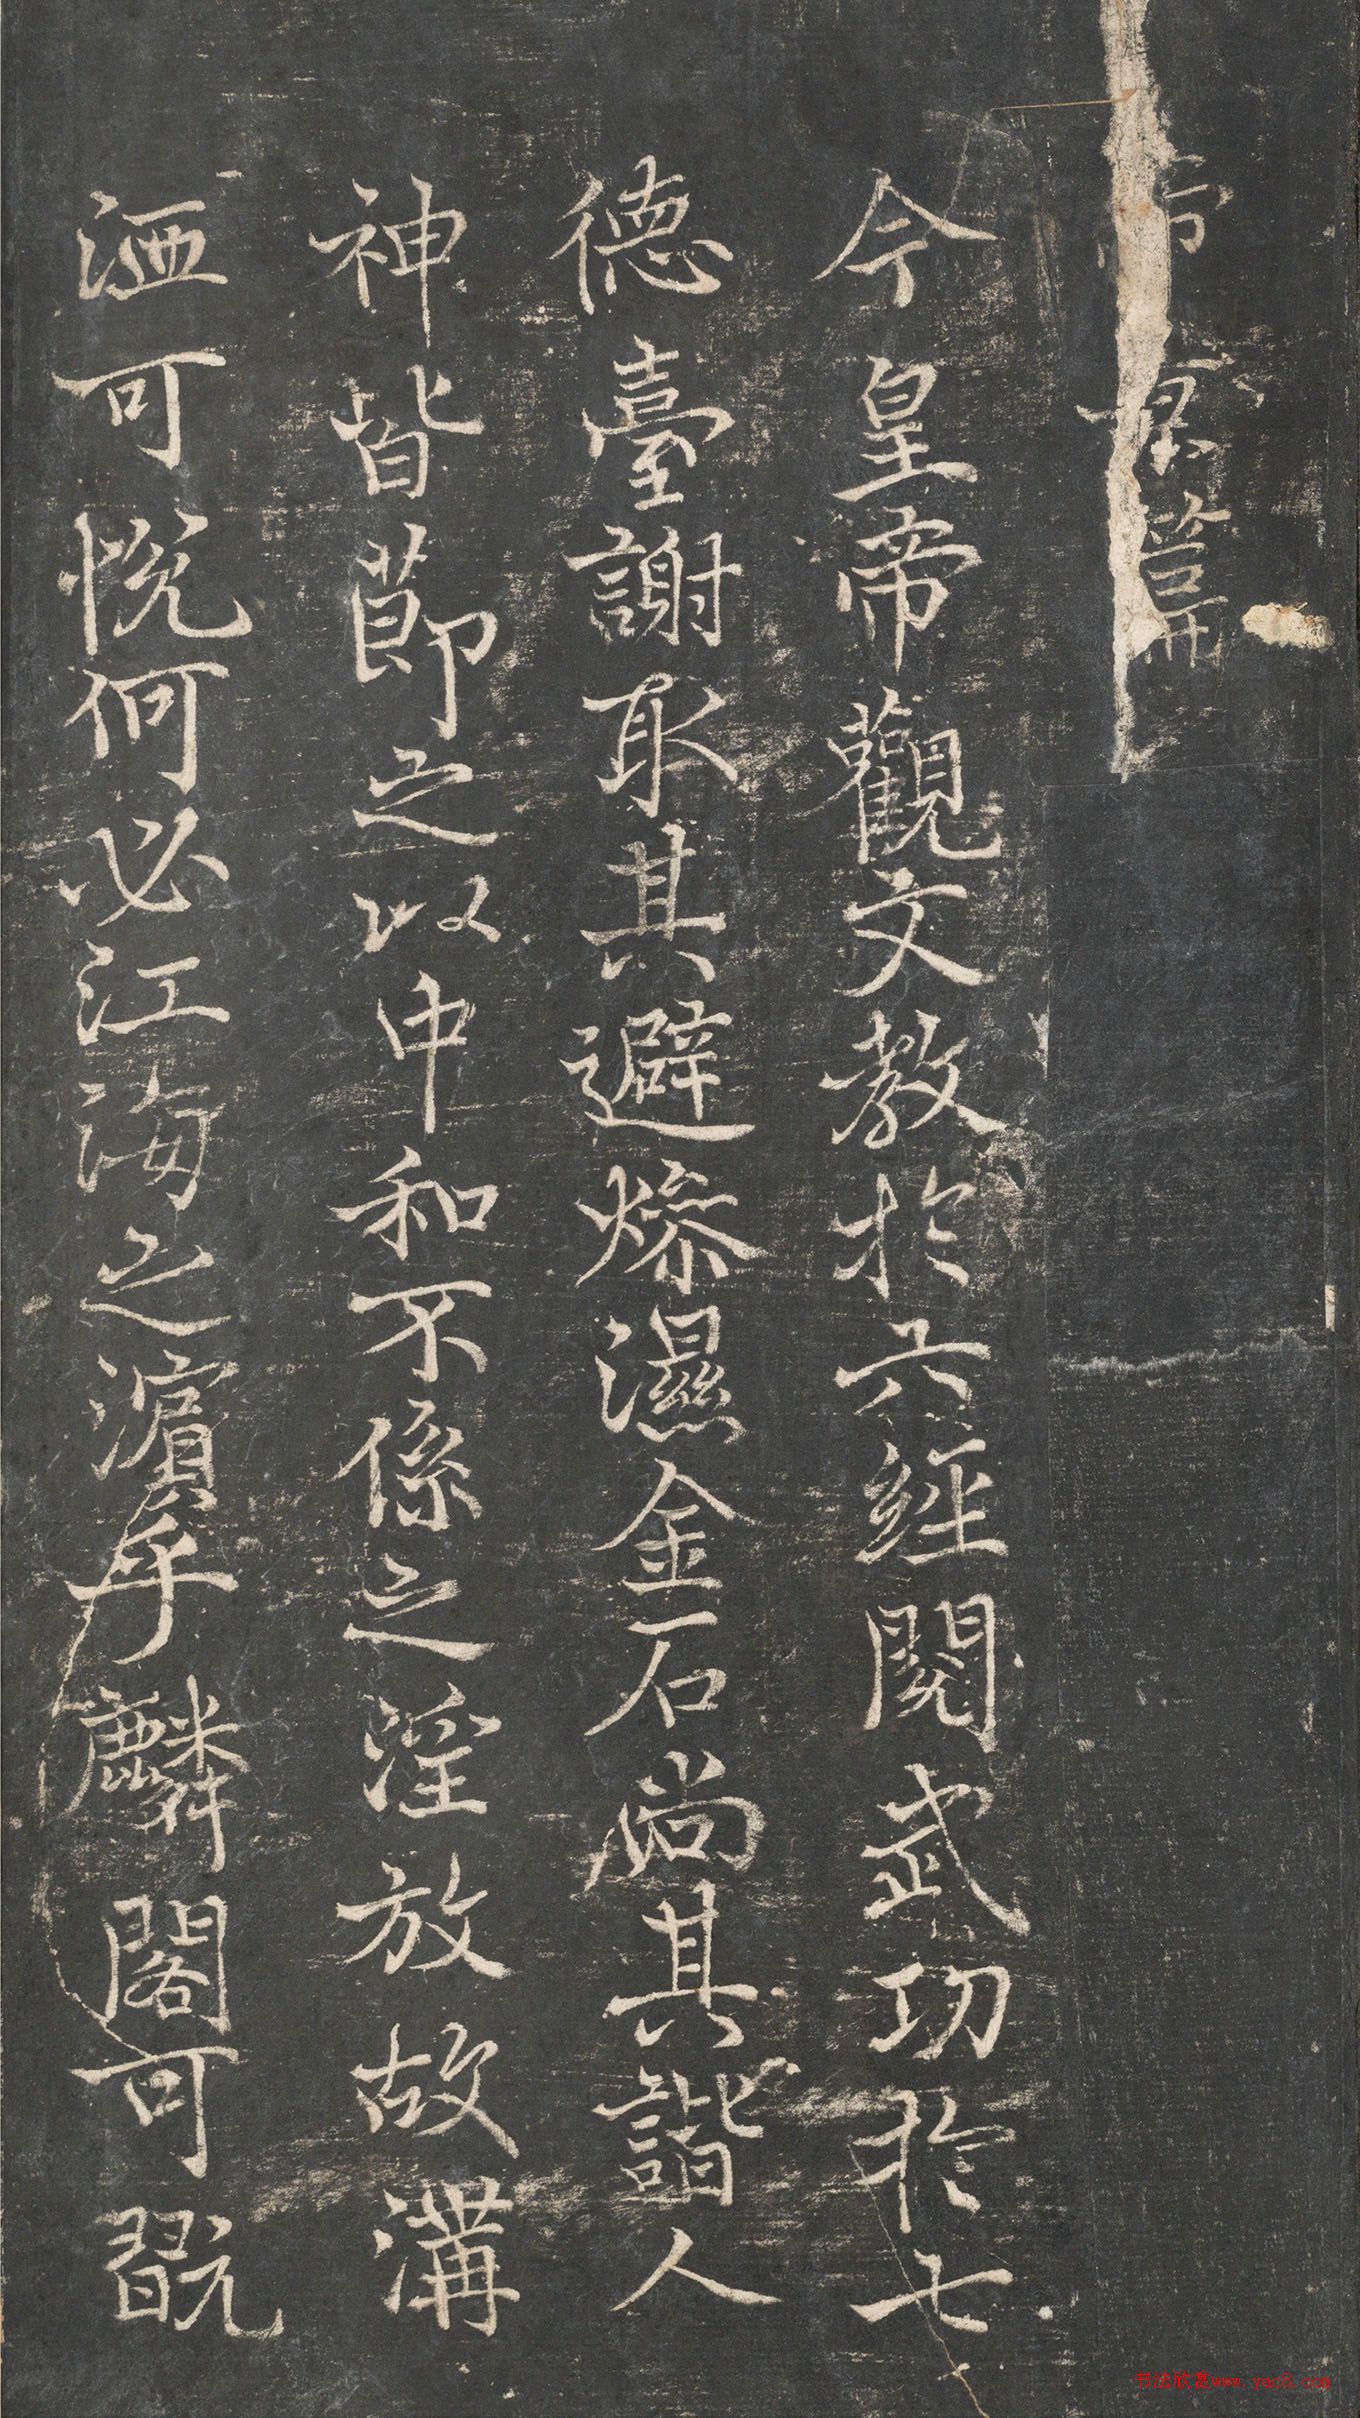 帝京篇
今皇帝觀文教於六經閱武功於七
德臺謝取其避燥濕金石尚其諧人
神皆節之以中和不係之淫放故溝
洫可悅何必江海之濱乎麟閣可翫
书法欣赏www.yac8.com